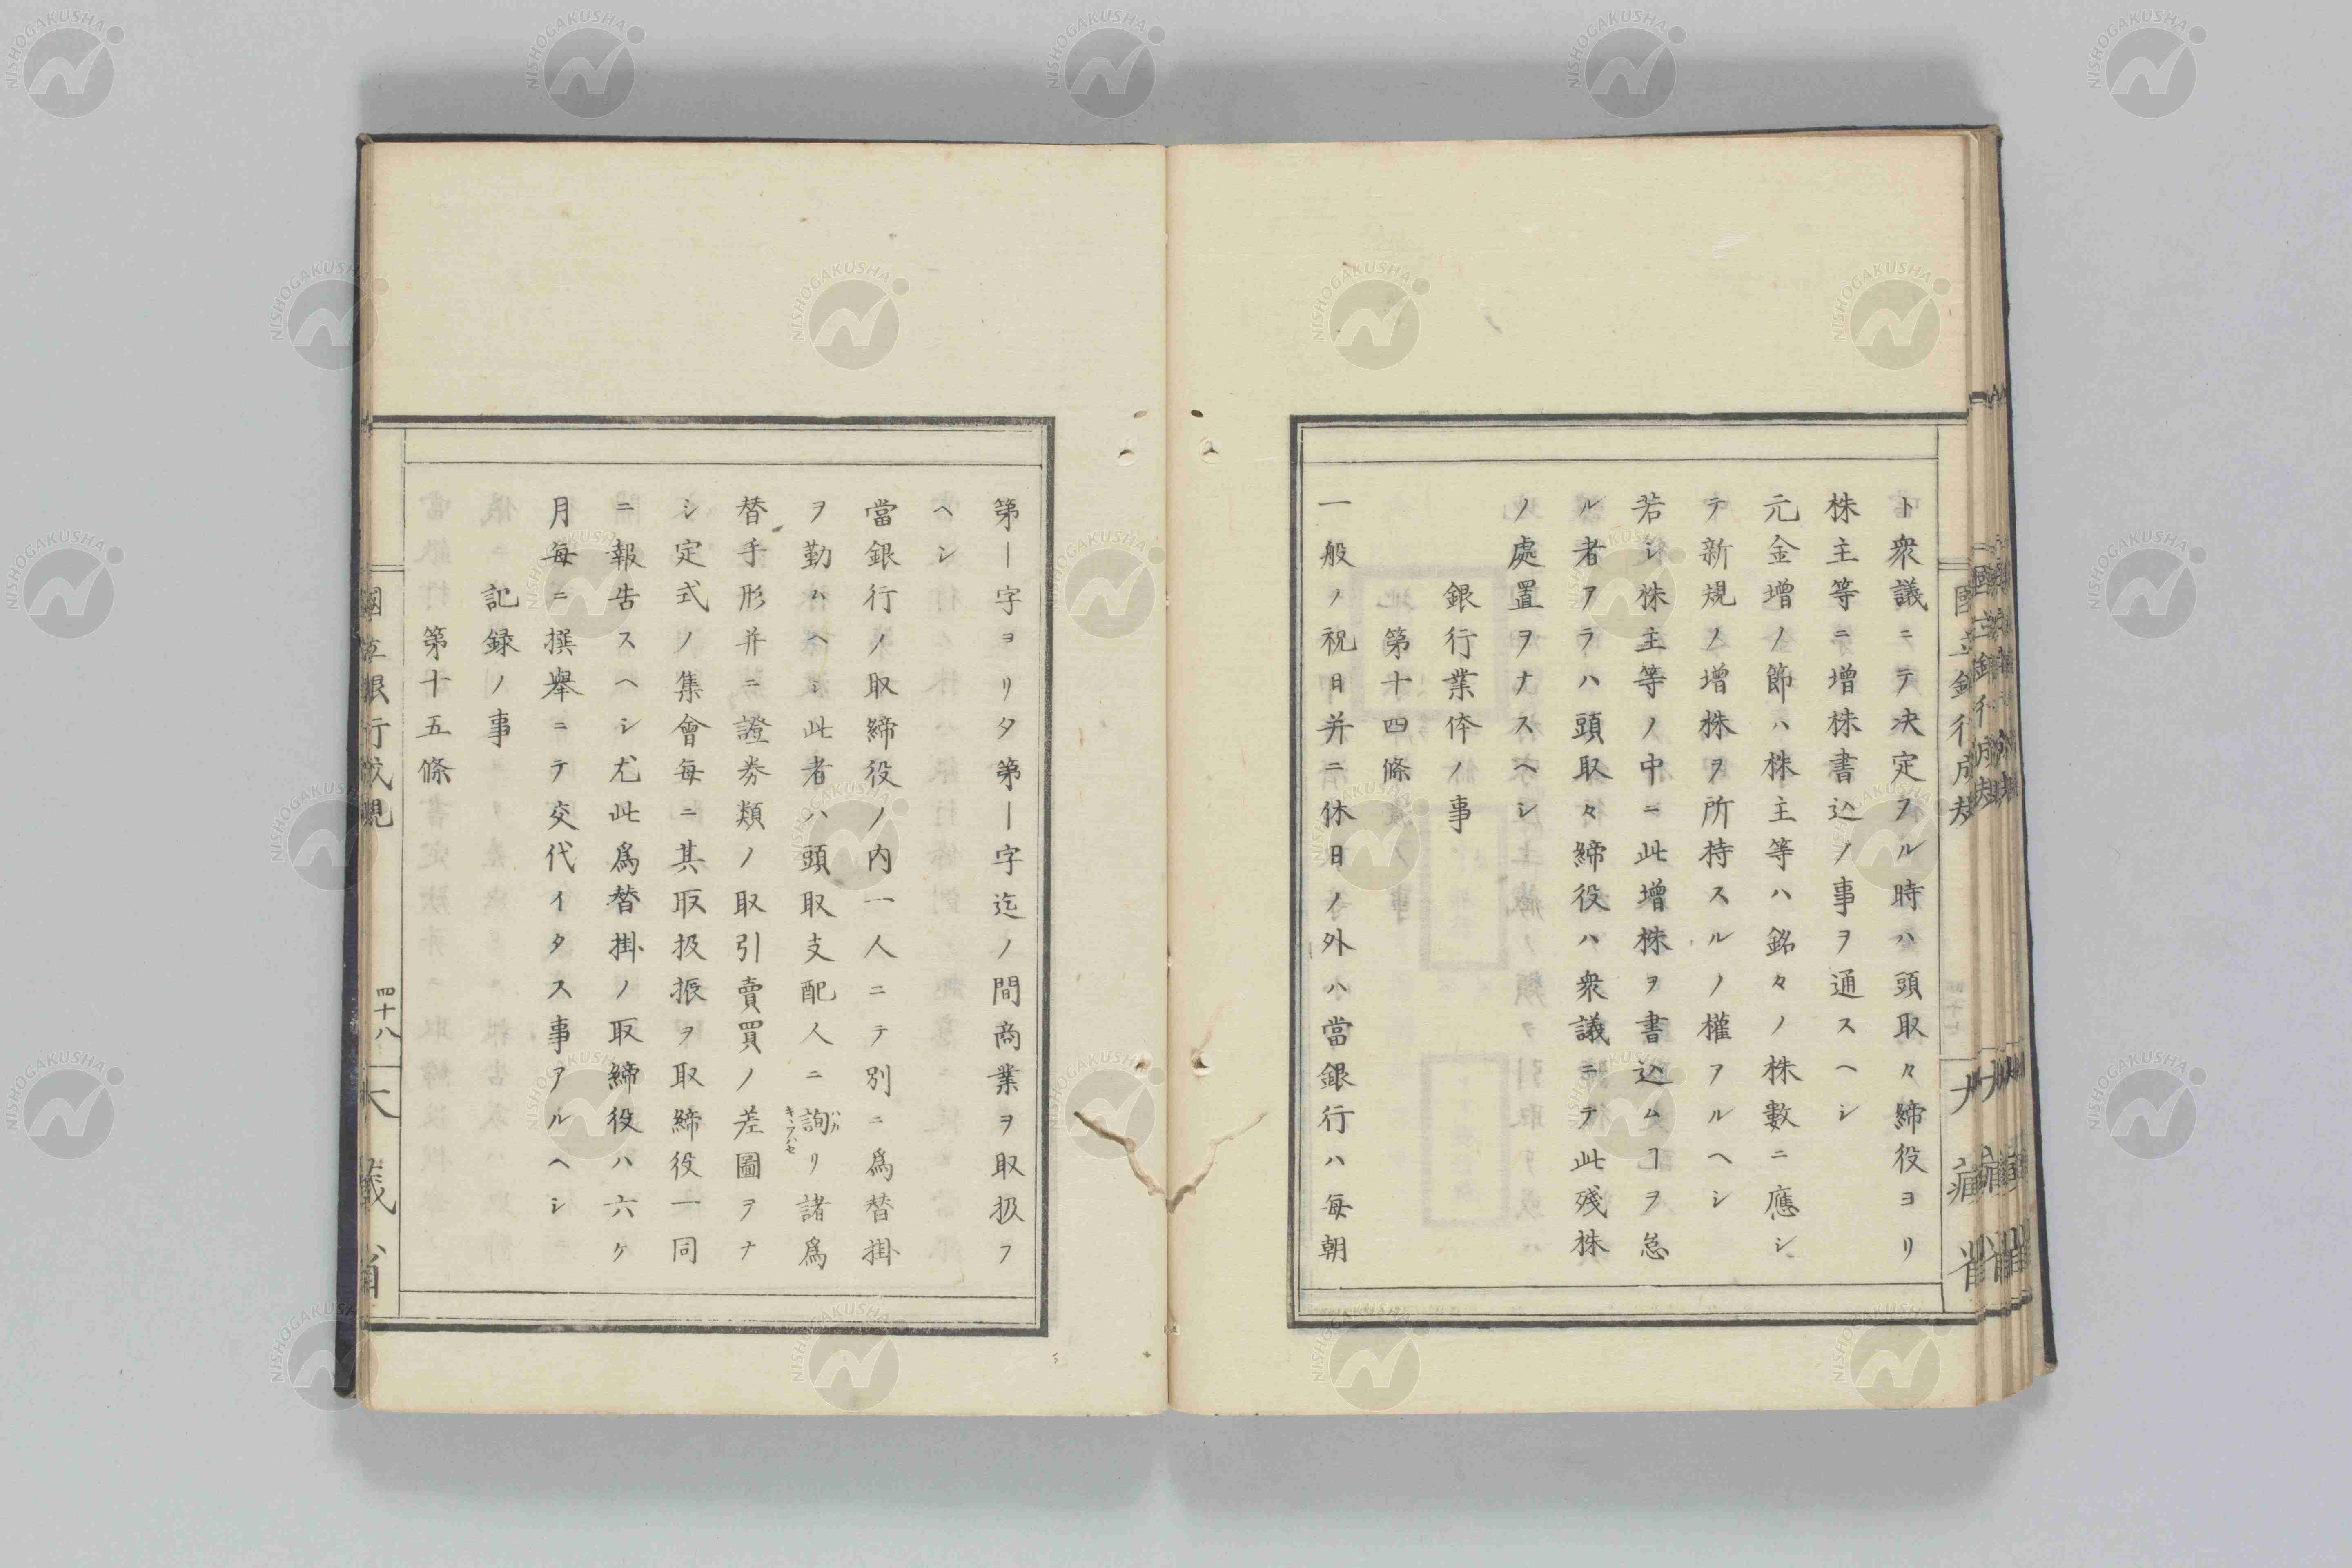 ト衆議ニテ決定フル時ハ頭取々締役ヨリ
株主等ニ增株書込ノ事ヲ通スヘシ
元金增ノ節ハ株主等ハ銘々ノ株數ニ應シ
テ新規ノ增株ヲ所持スルノ權アルヘシ
若シ株主等ノ中ニ此增株ヲ書込ムヿヲ怠
ル者アラハ頭取々締役ハ衆議ニテ此殘株
ノ處置ヲナスヘシ
銀行業体ノ事
第十四條
一般ノ祝日并ニ休日ノ外ハ當銀行ハ每朝
第｜字ヨリタ第｜字迄ノ間商業ヲ取扱フ
ヘシ
當銀行ノ取締役ノ内一人ニテ別ニ爲替掛
ヲ勤ムヘシ此者ハ頭取支配人ニ詢リ諸爲
替手形并ニ證券類ノ取引賣買ノ差圖ヲナ
シ定式ノ集會每ニ其取扱振ヲ取締役一同
ニ報告スヘシ尤此爲替掛ノ取締役ハ六ケ
月每ニ撰擧ニテ交代イタス事アルヘシ
記録ノ事
第十五條
國立銀行成規
四十八
大藏省
NISHOGAKUSHA